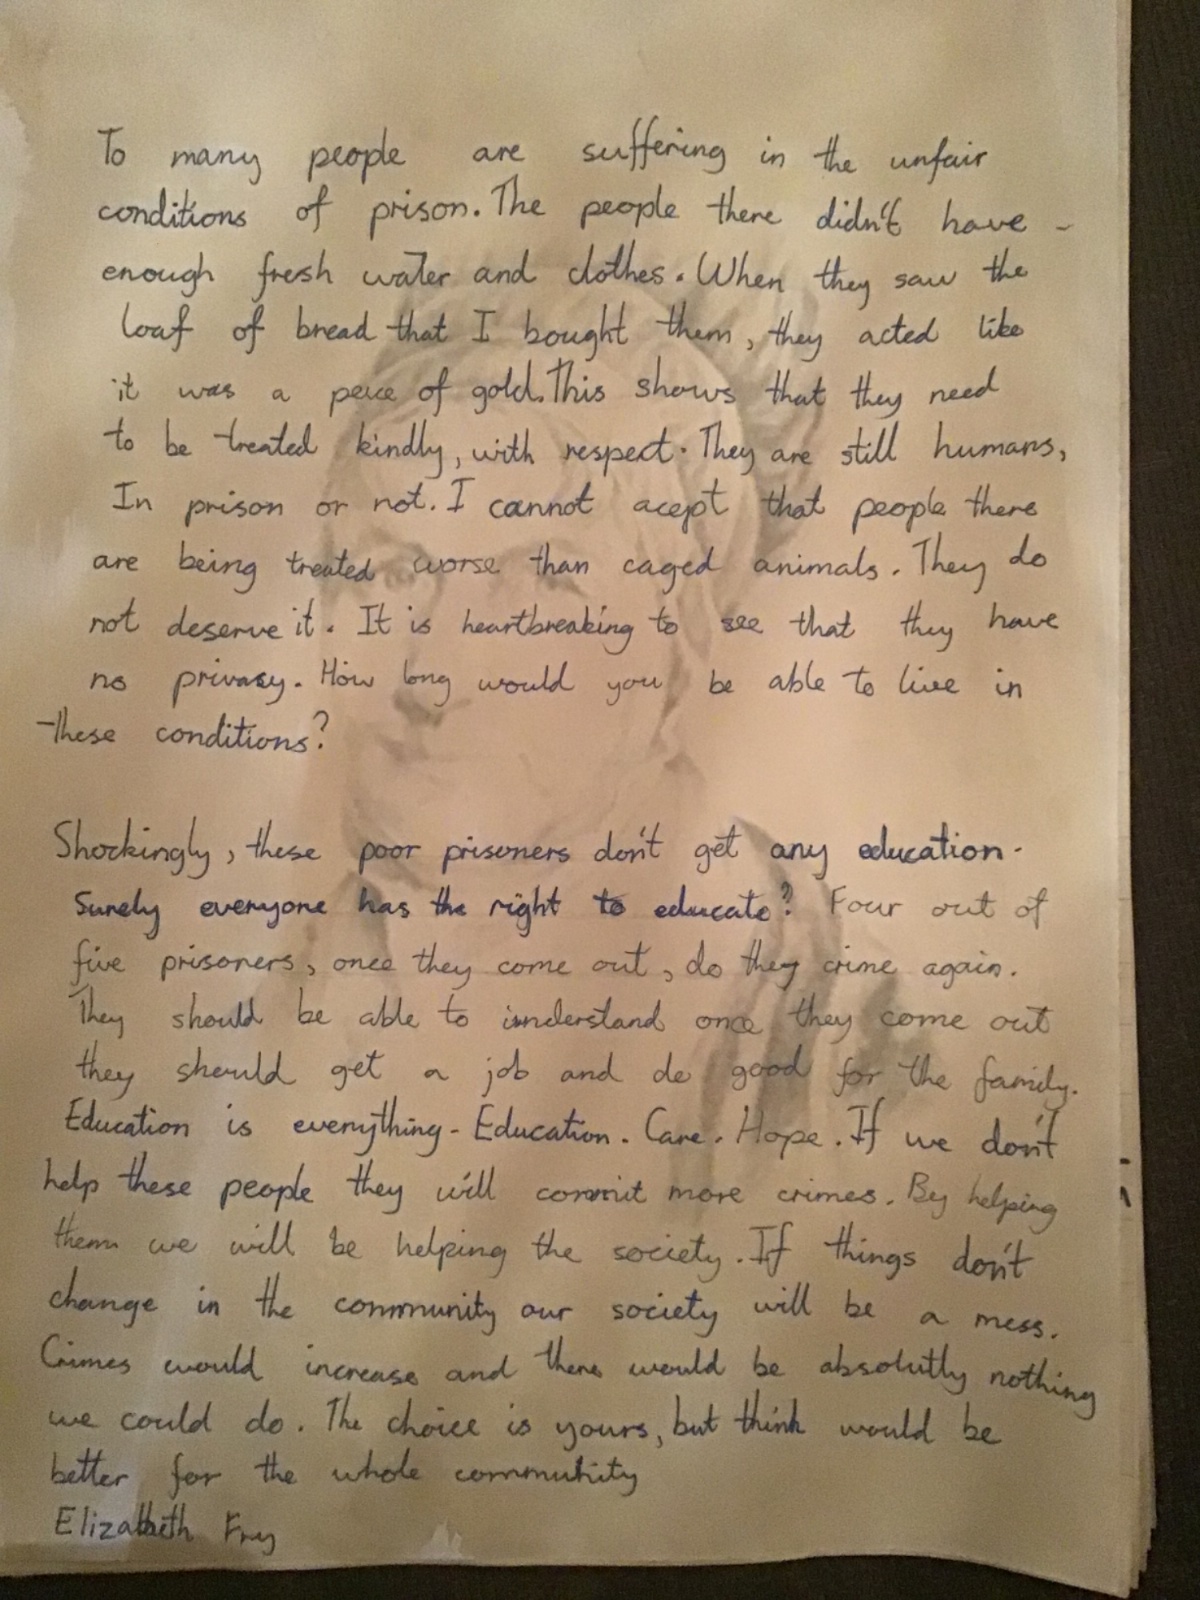 To many people are suffering in the unfair
conditions of prison. The people there didn't have
enough fresh water and clothes. When they saw the
loaf of bread that I bought them, they acted like
it was a peice of gold. This shows that they need
to be treated kindly, with respect. They are still humans,
In prison or not. I cannot acept that people there
are being treated worse than caged animals. They do
not deserve it. It is heartbreaking to see that they have
no privasy. How long would you be able to live in
these conditions?
Shockingly, these poor prisoners don't get any education.
Surely everyone has the right to educate? Four out of
five prisoners, once they come out, do they crime again.
They should be able to understand once they come out
they should get a job and do good for the family.
Education is everything - Education. Care. Hope. If we don't
help these people they will commit more crimes. By helping
them we will be helping the society. If things don't
change in the community our society will be a mess.
Crimes would increase and there would be absolutly nothing
we could do. The choice is yours, but think would be
better for the whole community
Elizabeth Fry